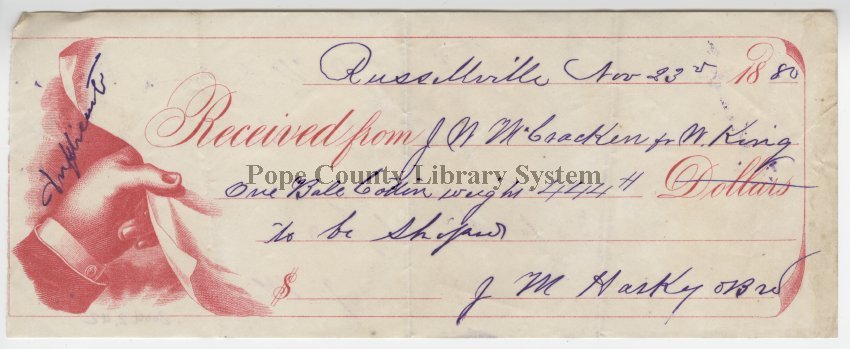 Duplicate
Russellville Nov 23d 1880
Received from J W McCracken for W King
Pope County Library System
One Bale Cotton weight 444 # Dollars
to be Shiped
$ J M Harkey & Bro